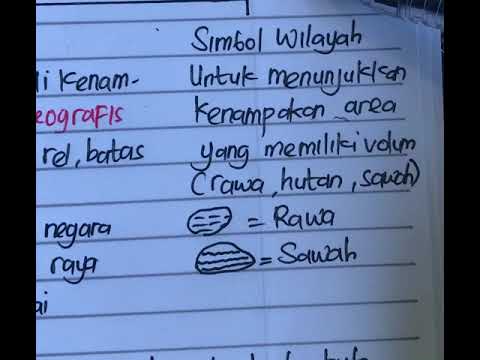 Simbol Wilayah
Untuk menunjukkan
kenampakan area
yang memiliki volum
(rawa, hutan, sawah)
= Rawa
= Sawah
li kenam-
eografis
rel, batas
negara
raya
ai